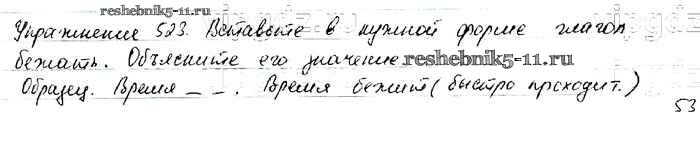 reshebnik5-11.ru
Упражнение 523. Вставьте в нужной форме глагол
бежать. Объясните его значение reshebnik5-11.ru
Образец. Время _ _ . Время бежит (быстро проходит.)
53